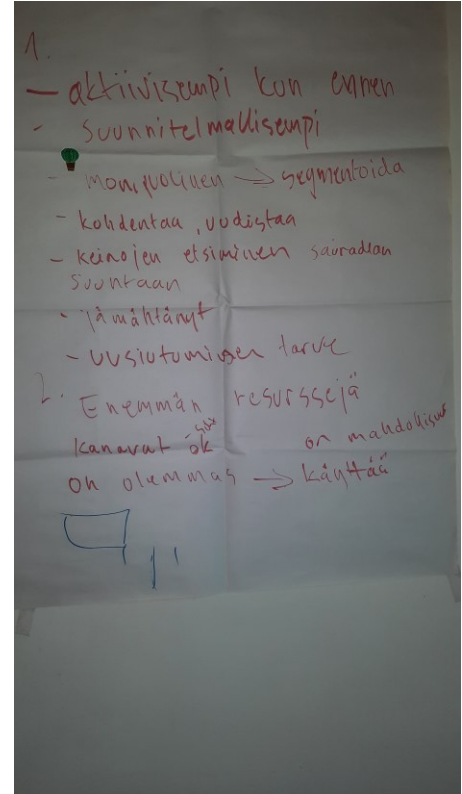 1.
— aktiivisempi kun ennen
- suunnitelmallisempi
- monipuolinen → segmentoida
- kohdentaa, uudistaa
- keinojen etsiminen seuraavaan
suuntaan
- jämähtänyt
- uusiutumisen tarve
2. Enemmän resurssejä
kanavat ok on mahdollisuus
on olemmas → käyttää